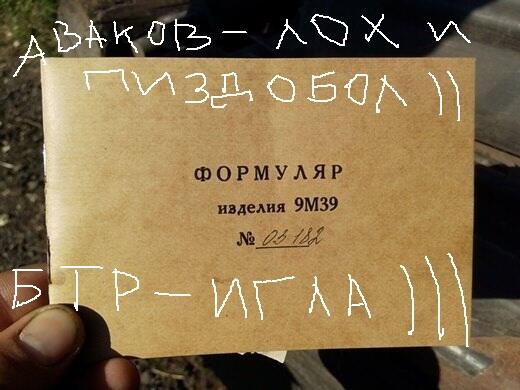 АВАКОВ – ЛОХ И
ПИЗДОБОЛ ))
ФОРМУЛЯР
изделия 9М39
№ 03182
БТР – ИГЛА )))